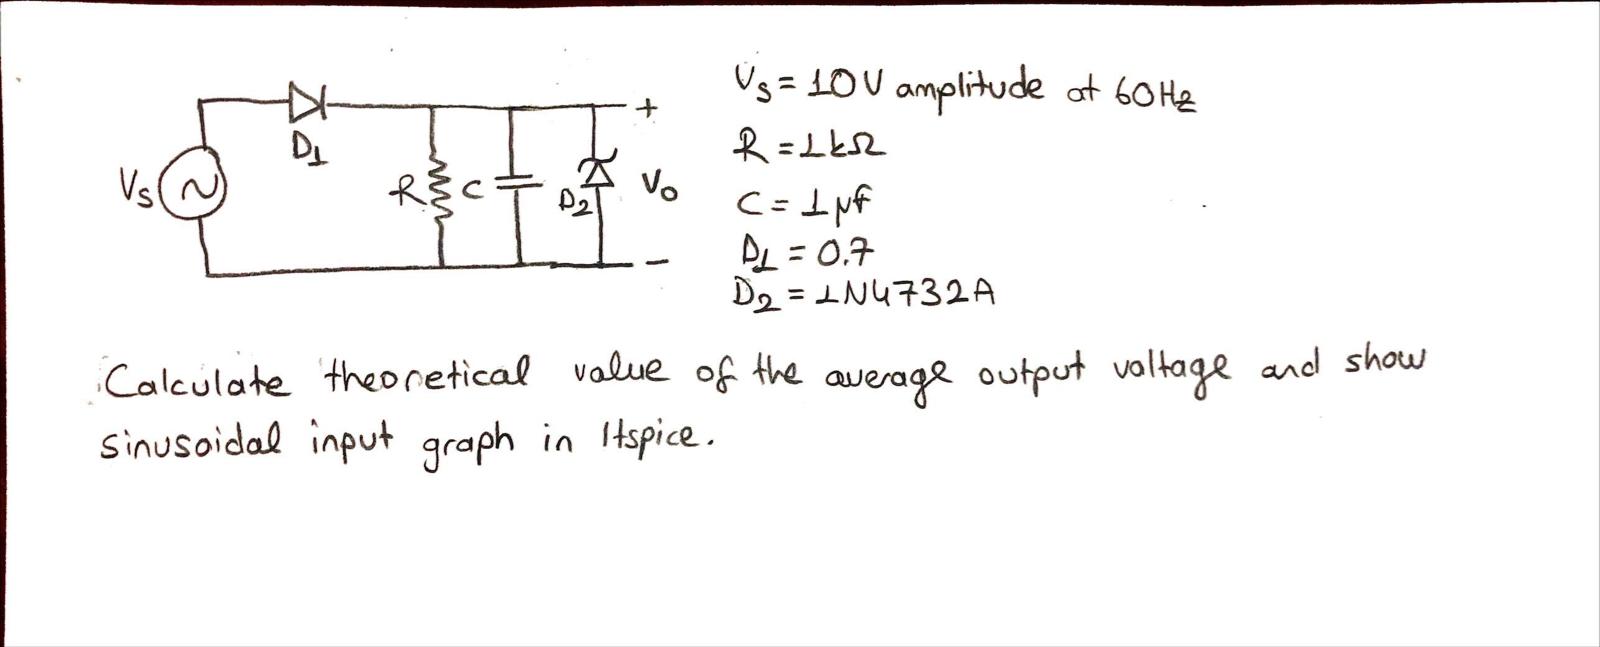 Vs = 10V amplitude at 60Hz
R = 1kΩ
C = 1μf
D1 = 0.7
D2 = 1N4732A
D1
Vs
R
C
D2
+
Vo
-
Calculate theoretical value of the average output voltage and show
sinusoidal input graph in ltspice.